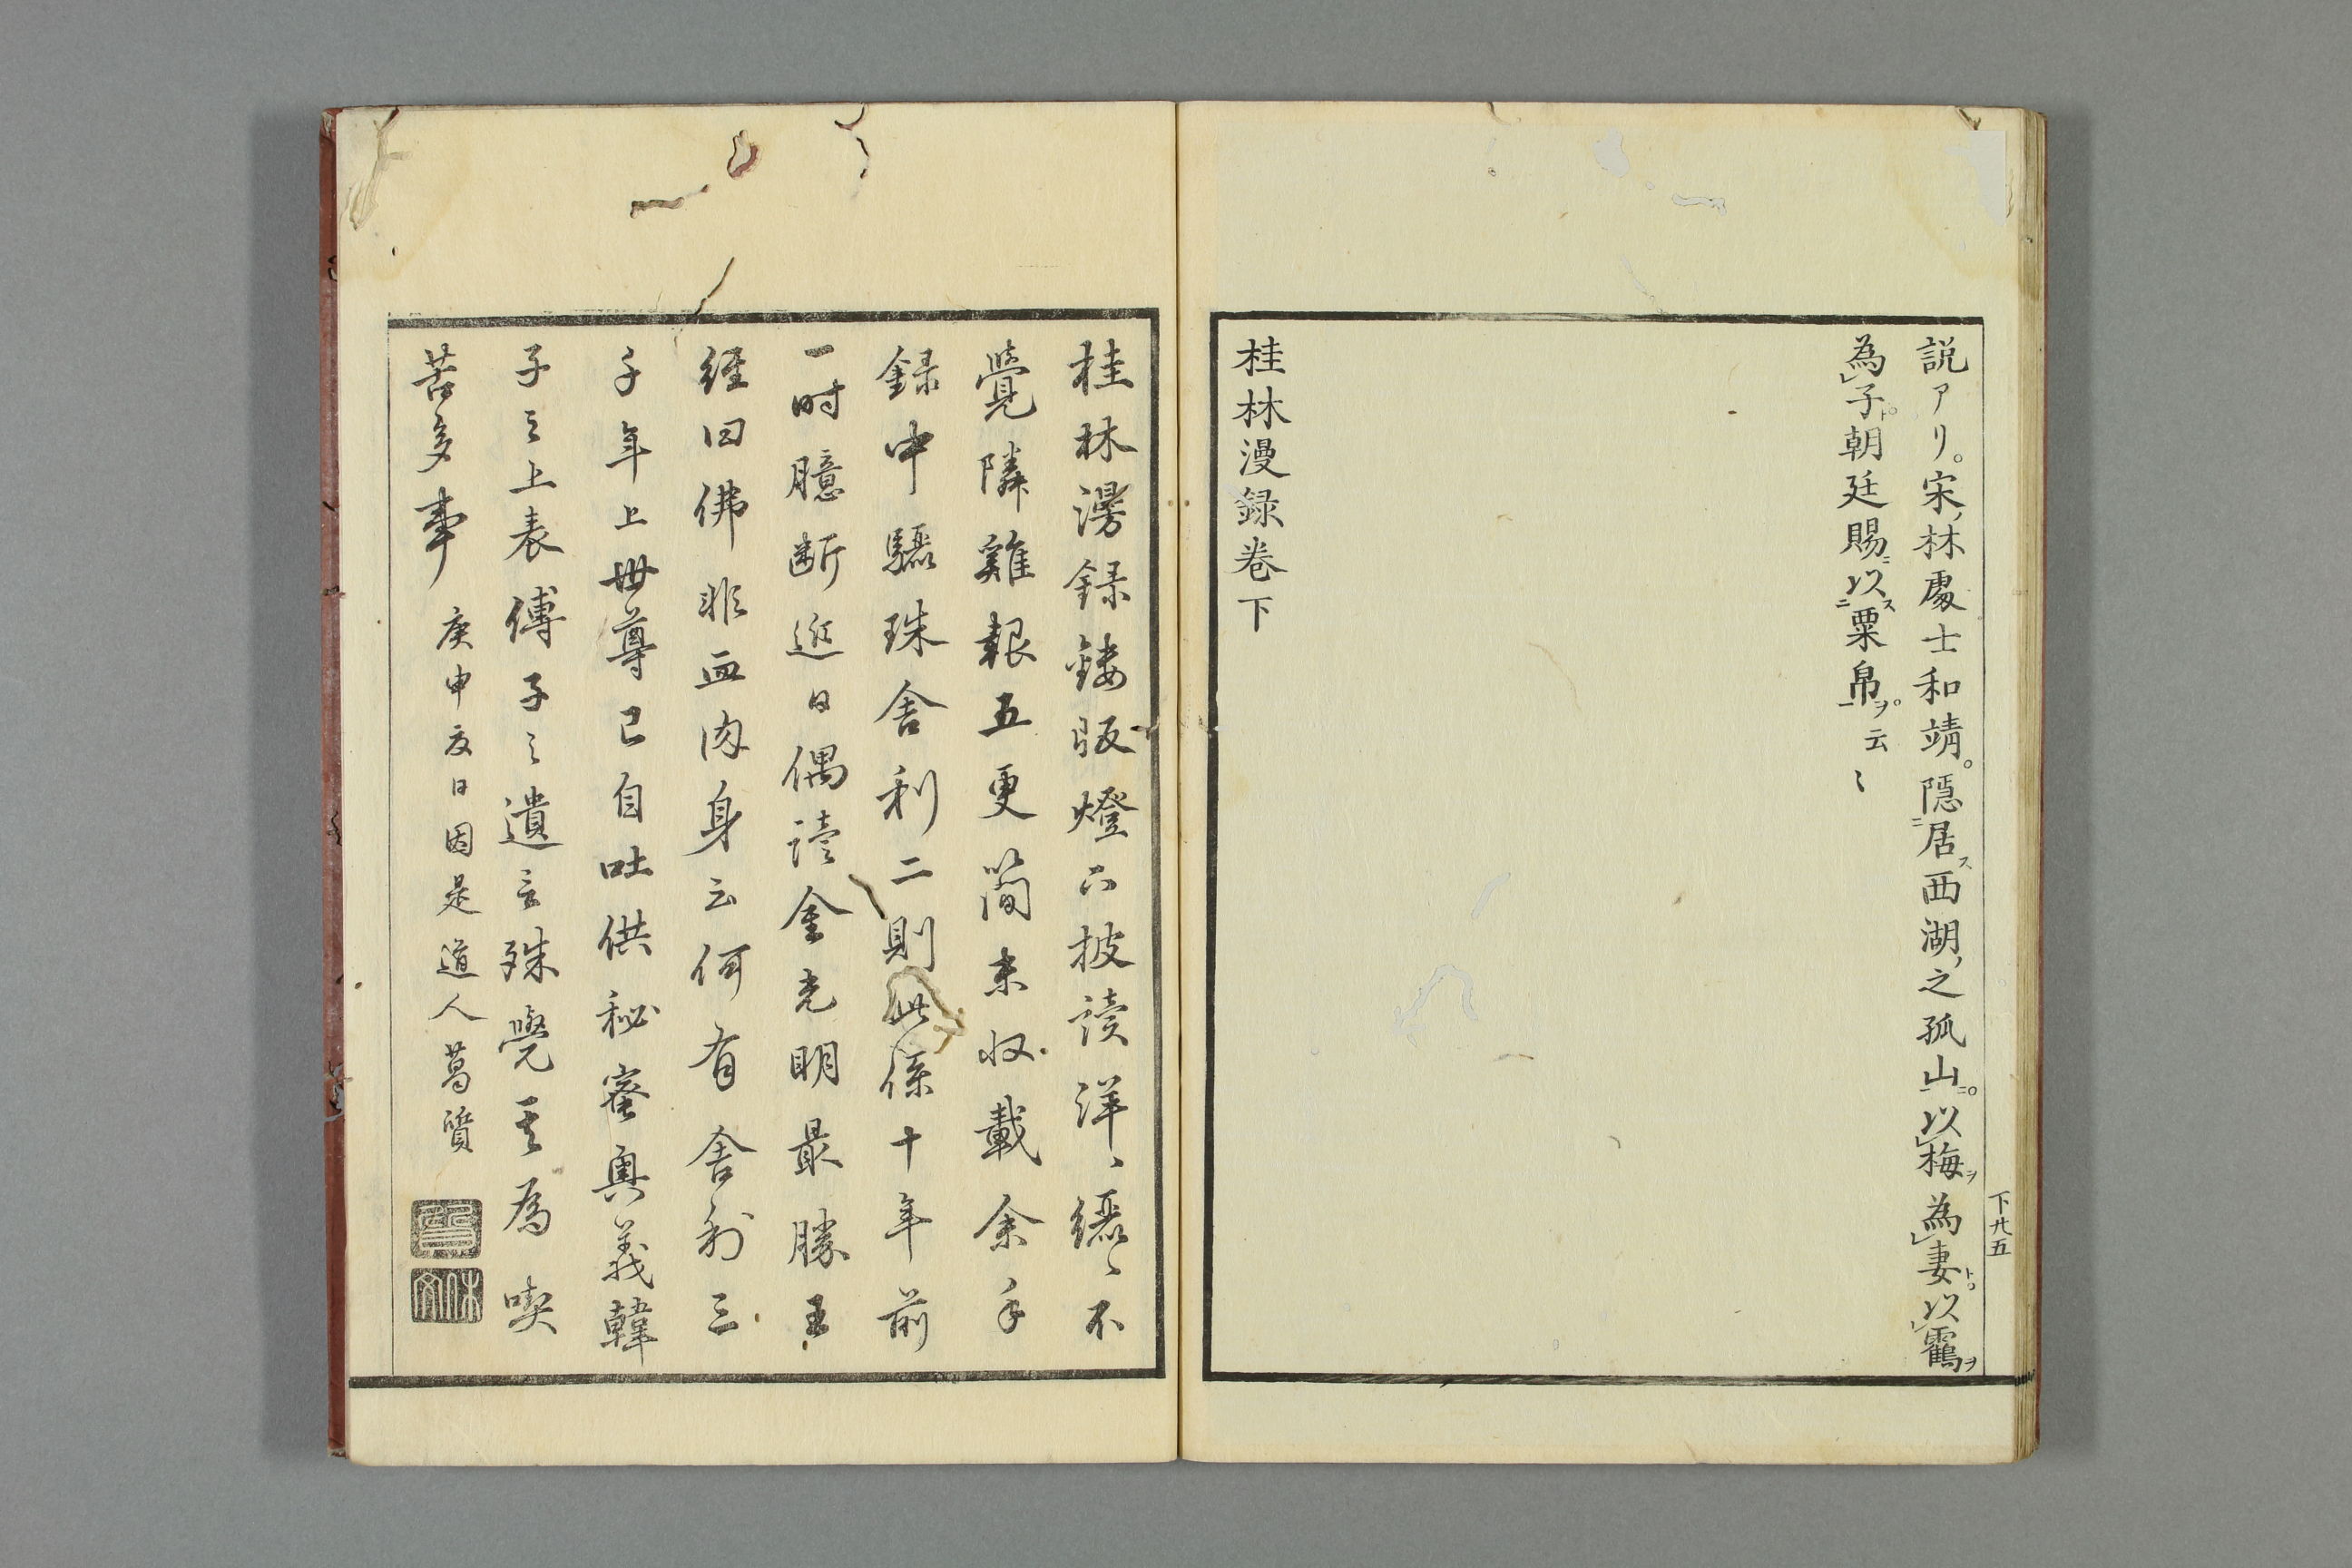 説アリ。宋ノ林處士和靖。隠居ス西湖ノ之孤山ニ。以梅ヲ為妻ト。以靏ヲ
為子ト。朝廷賜ニ以ス粟帛ヲ。云〻
桂林漫録巻下
下廿五
桂林漫録鏤版燈下披读洋〻纚〻不
覺隣雞報五更簡末收載余手
録中驪珠舎利二則此係十年前
一时臆断近日偶读金光明最勝王
経曰佛非血肉身云何有舎利三
千年上世尊已自吐供秘蜜奥義韓
子之上表傅子之遺言殊覺其為喫
苦多事
庚申夏日因是道人葛質